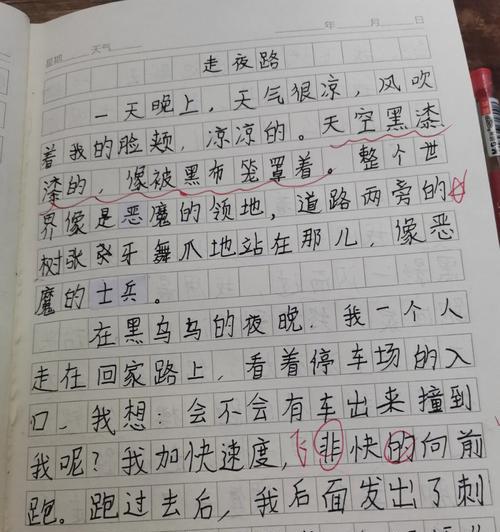 星期 天气 年 月 日
走夜路
一天晚上，天气很凉，风吹
着我的脸颊，凉凉的。天空黑漆
漆的，像被黑布笼罩着。整个世
界像是恶魔的领地，道路两旁的
树张牙舞爪地站在那儿，像恶
魔的士兵。
在黑乌乌的夜晚，我一个人
走在回家路上，看着停车场的入
口，我想：会不会有车出来撞到
我呢？我加快速度，非快的向前
跑。跑过去后，我后面发出了刺